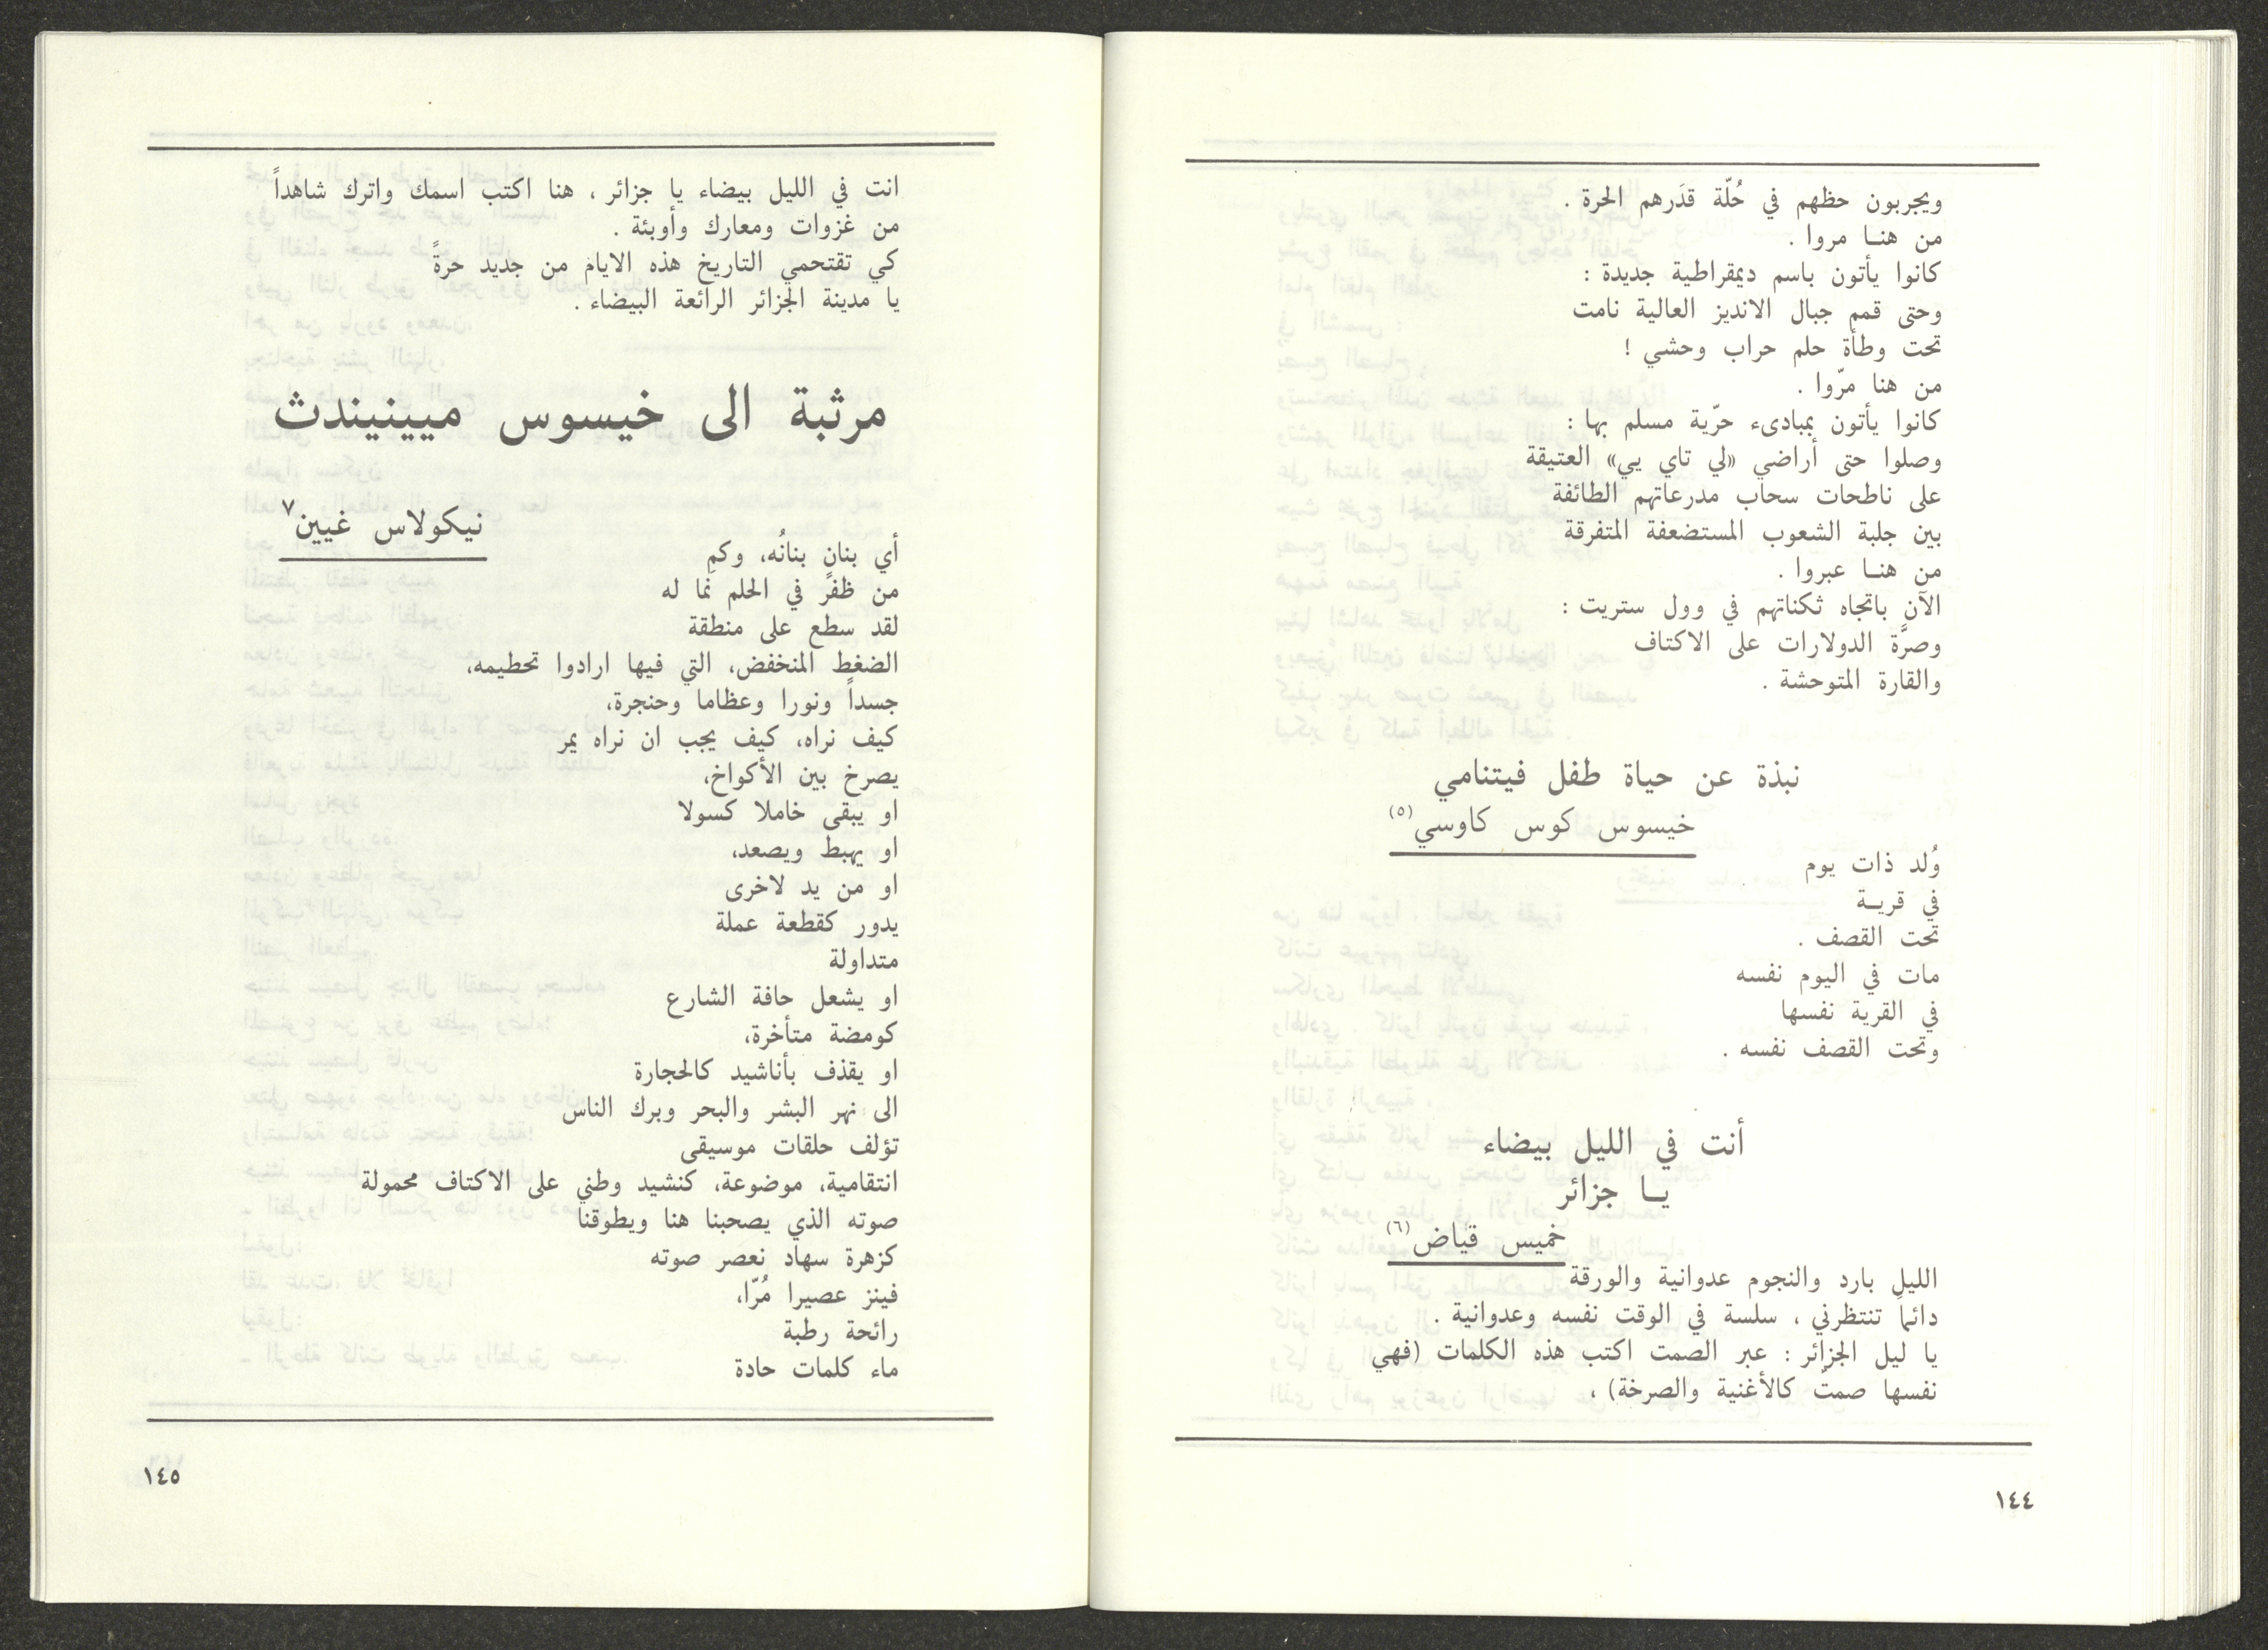 ويجربون حظهم في حُلّة قدَرهم الحرة .
من هنـا مروا .
كانوا يأتون باسم ديمقراطية جديدة :
وحتى قمم جبال الانديز العالية نامت
تحت وطأة حلم حراب وحشي !
من هنا مرّوا .
كانوا يأتون بمبادىء حرّية مسلم بها :
وصلوا حتى أراضي «لي تاي يي» العتيقة
على ناطحات سحاب مدرعاتهم الطائفة
بين جلبة الشعوب المستضعفة المتفرقة
من هنـا عبروا .
الآن باتجاه ثكناتهم في وول ستريت :
وصرَّة الدولارات على الاكتاف
والقارة المتوحشة .
نبذة عن حياة طفل فيتنامي
خيسوس كوس كاوسي (٥)
وُلد ذات يوم
في قريـة
تحت القصف .
مات في اليوم نفسه
في القرية نفسها
وتحت القصف نفسه .
أنت في الليل بيضاء
يـا جزائر
خميس قيّاض (٦)
الليل بارد والنجوم عدوانية والورقة
دائماً تنتظرني ، سلسة في الوقت نفسه وعدوانية .
يا ليل الجزائر : عبر الصمت اكتب هذه الكلمات (فهي
نفسها صمتٌ كالأغنية والصرخة) ،
١٤٤
انت في الليل بيضاء يا جزائر ، هنا اكتب اسمك واترك شاهداً
من غزوات ومعارك وأوبئة .
كي تقتحمي التاريخ هذه الايام من جديد حرةً
يا مدينة الجزائر الرائعة البيضاء .
مرثبة الى خيسوس ميينيندث
نيكولاس غيين ٧
أي بنانٍ بنانُه، وكم
من ظفرٍ في الحلم نما له
لقد سطع على منطقة
الضغط المنخفض، التي فيها ارادوا تحطيمه،
جسداً ونورا وعظاما وحنجرة،
كيف نراه، كيف يجب ان نراه يمر
يصرخ بين الأكواخ،
او يبقى خاملا كسولا
او يهبط ويصعد،
او من يد لاخرى
يدور كقطعة عملة
متداولة
او يشعل حافة الشارع
كومضة متأخرة،
او يقذف بأناشيد كالحجارة
الى نهر البشر والبحر وبرك الناس
تؤلف حلقات موسيقى
انتقامية، موضوعة، كنشيد وطني على الاكتاف محمولة
صوته الذي يصحبنا هنا ويطوقنا
كزهرة سهاد نعصر صوته
فينز عصيرا مُرّا،
رائحة رطبة
ماء كلمات حادة
١٤٥